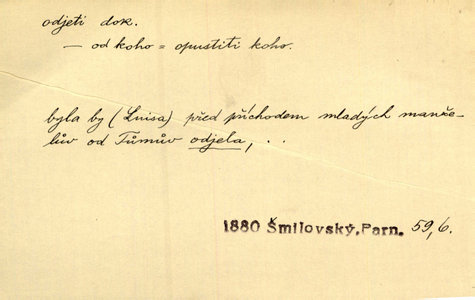 odjeti dok.
— od koho = opustiti koho.
byla by (Luisa) před příchodem mladých manže-
lův od Tůmův odjela, . .
1880 Šmilovský, Parn. 59, 6.